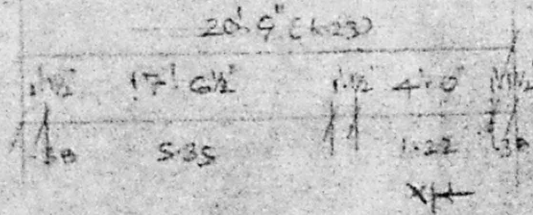 20' 9" (6.23)
1'½" 17' 6½" 1'.1½" 4'.0" 1'1½"
.38 5.35 1.22 .38